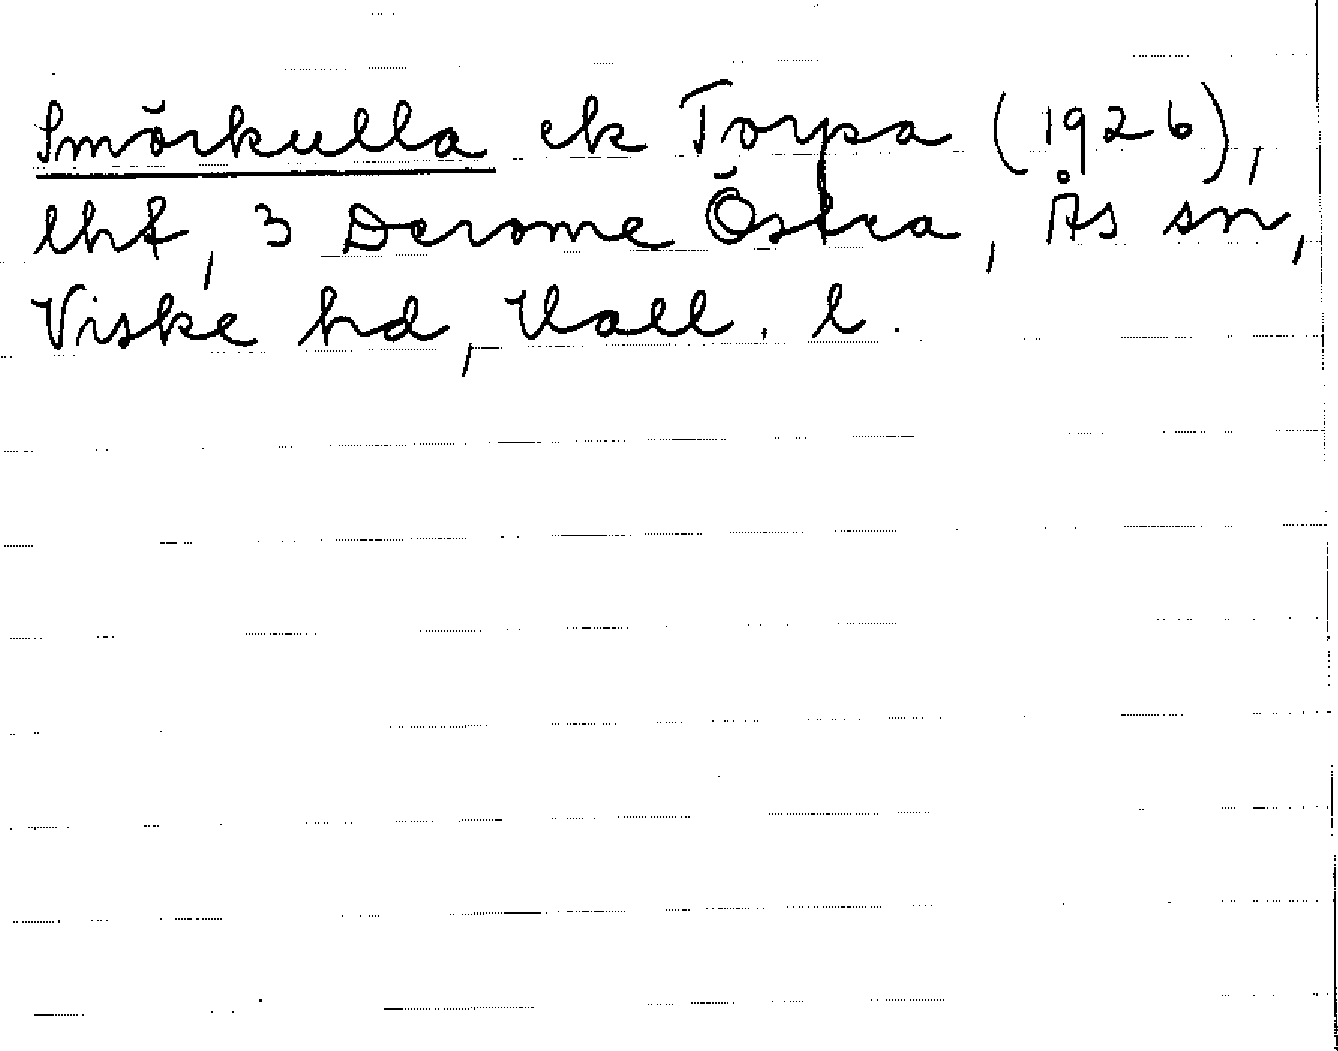 Smörkulla ek Torpa (1926),
lht, 3 Derome Östra, Ås sn,
Viske hd, Hall. l.